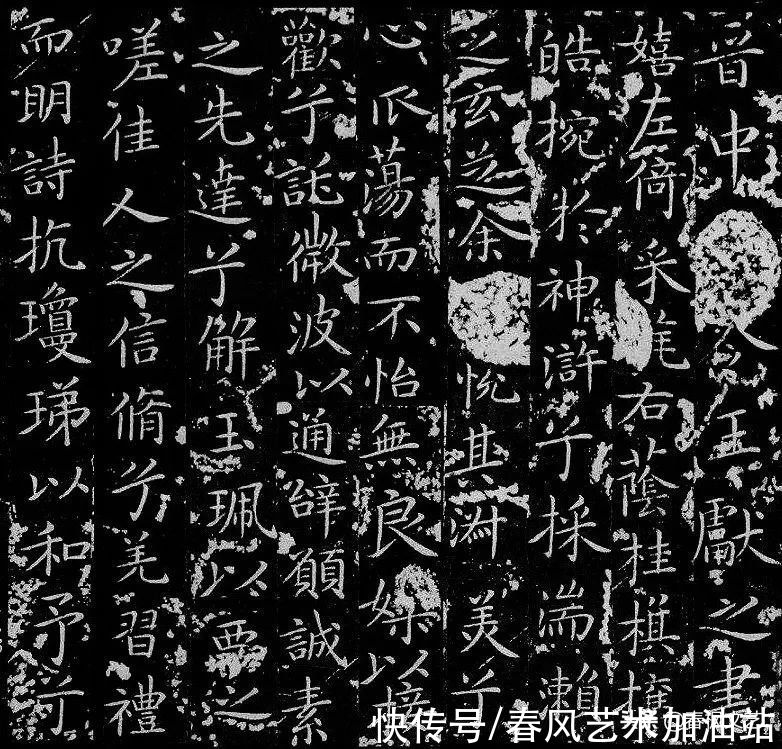 晉中王獻之書
嬉左倚采旄右蔭桂旗攘
皓捥於神滸兮採湍瀨
之玄芝余悅其淑美兮
心蕩而不怡無良媒以接
歡兮託微波以通辭願誠素
之先達兮解玉珮以要之
嗟佳人之信脩兮羌習禮
而明詩抗瓊珶以和予兮
快传号/春风艺术加油站